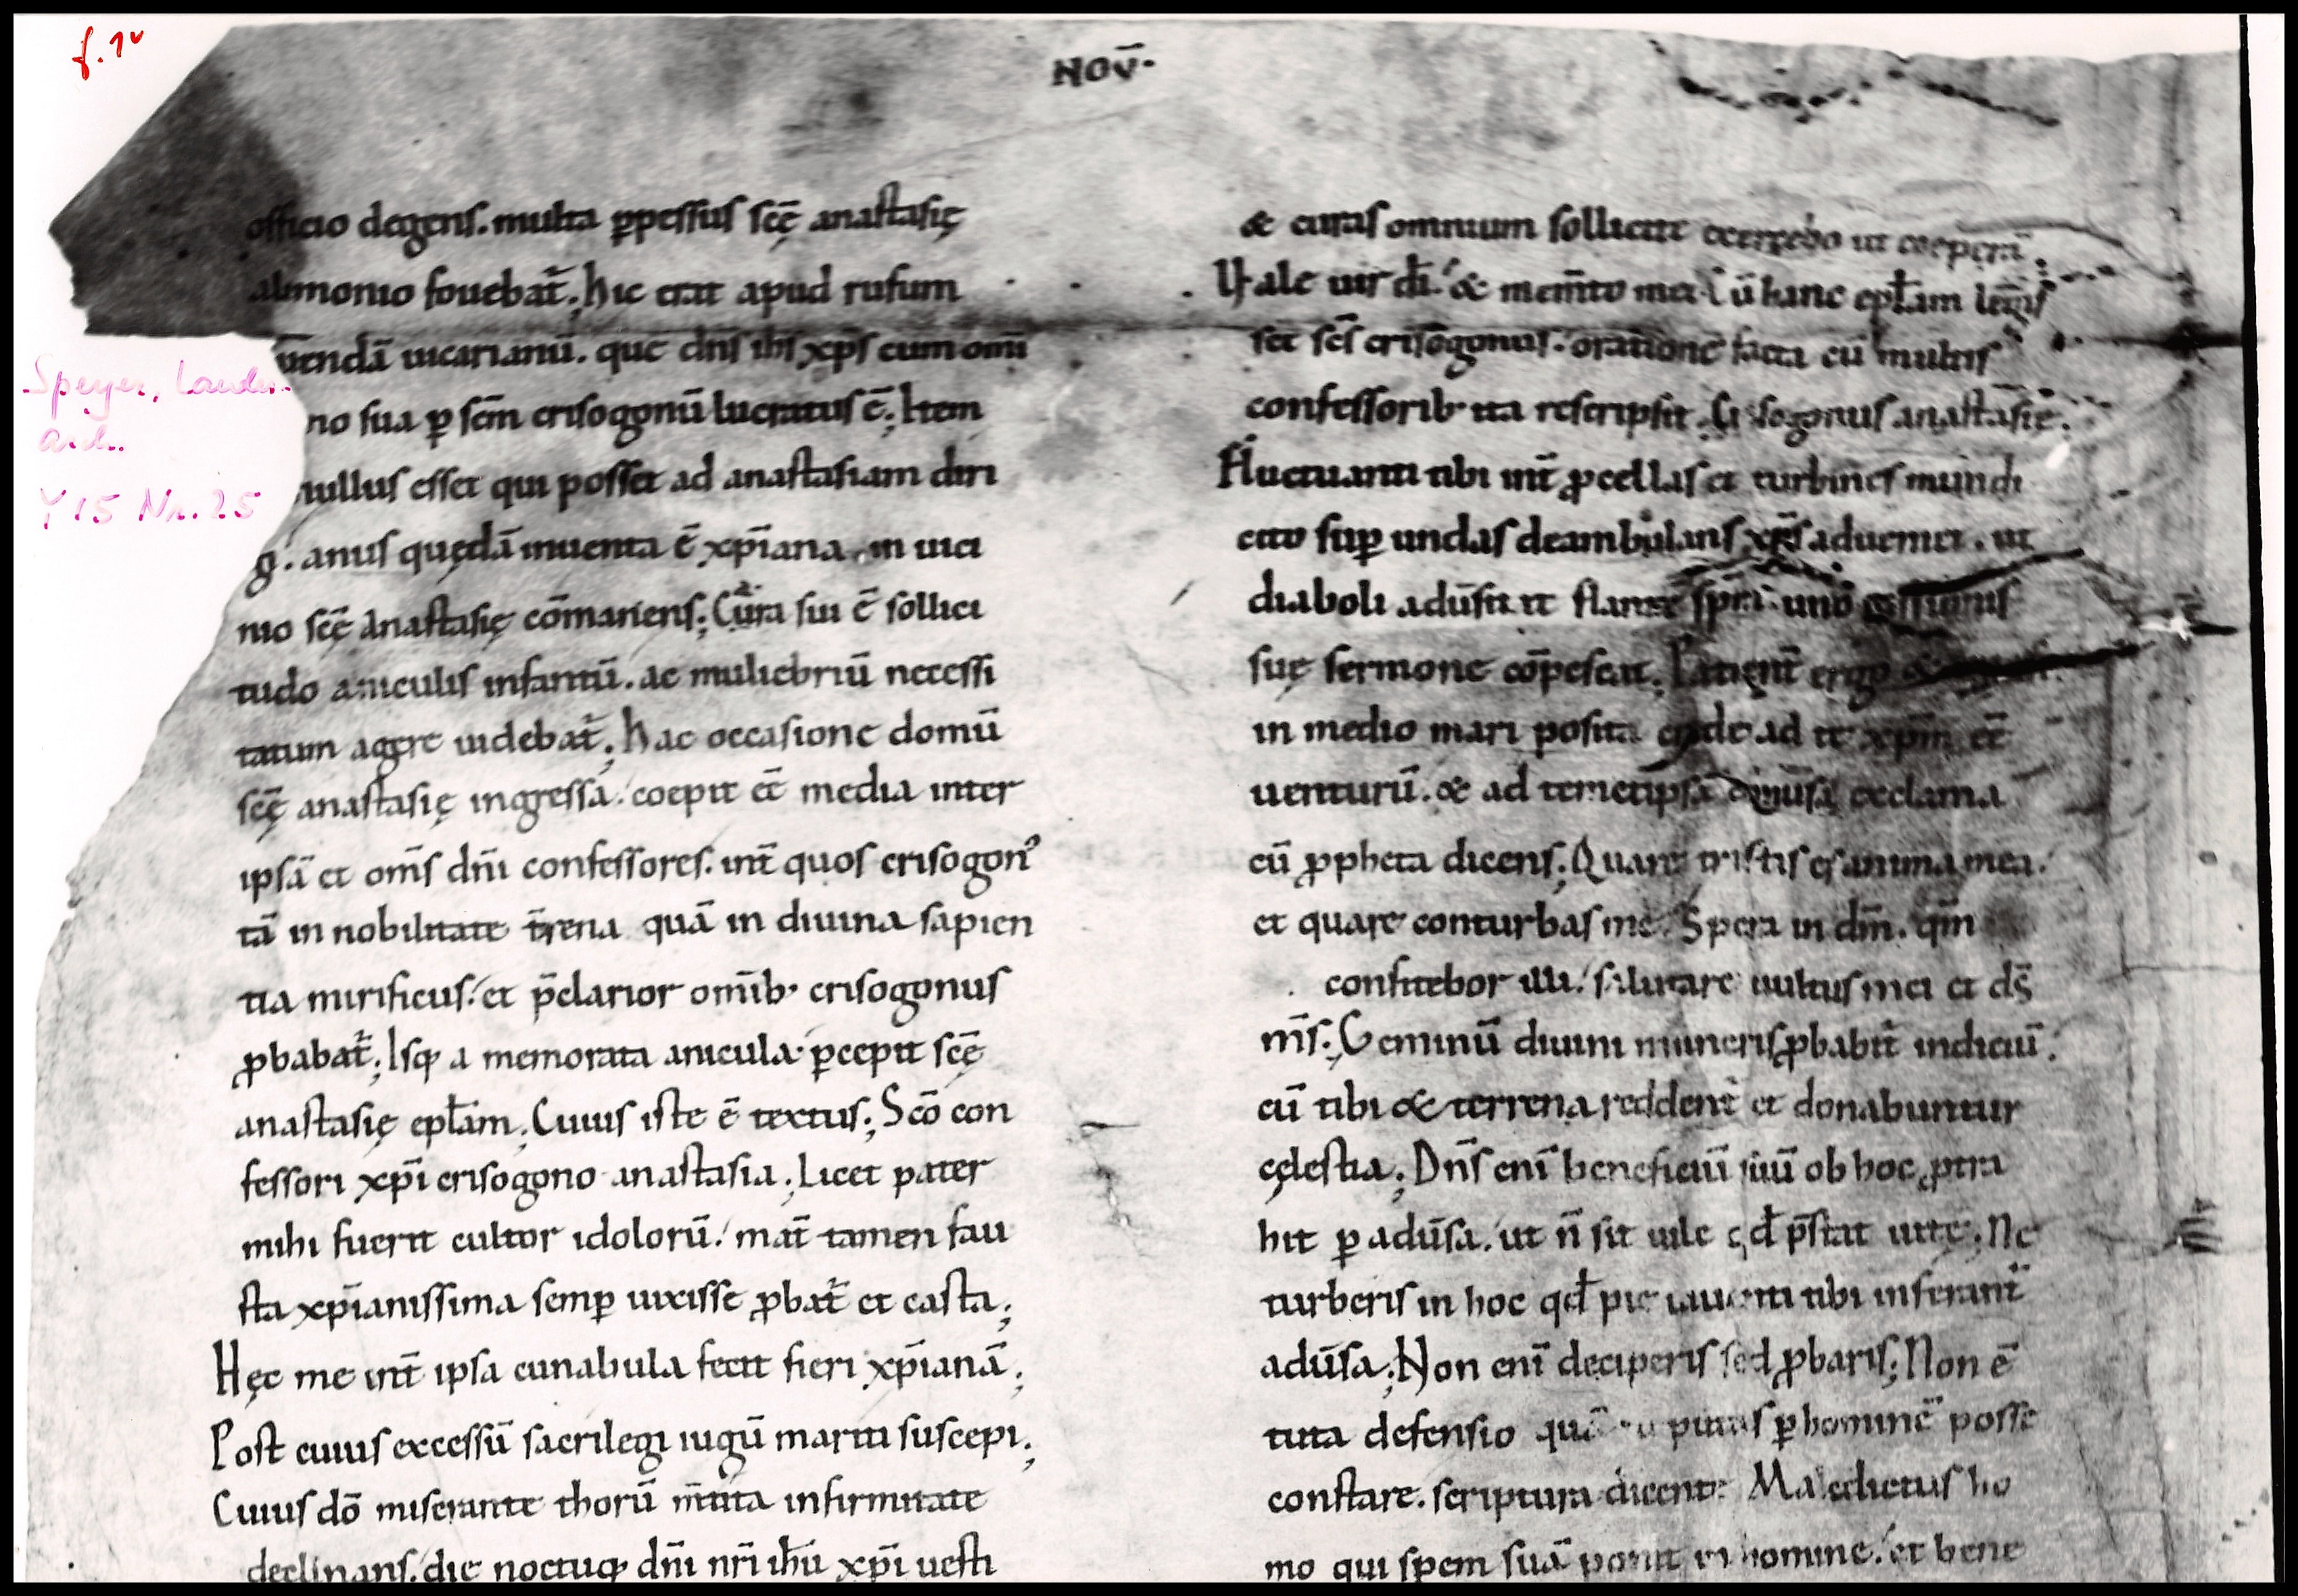 f. 1v
NOV̄·
officio degens. multa ꝑpessus scę̄ anastasię
alimonio fouebat᷑; hic erat apud rufum
uendā uicarianū. que dn̄s ih̄s xp̄s cum om̄i
no sua ꝑ scm̄ crisogonū lucratus ē; Item
nullus esset qui posset ad anastasiam diri
g. anus quędā inuenta ē xp̄iana, in uici
nio scę̄ anastasię cōmanens; Cura sui ē sollici
tudo aniculis infantū. ac muliebriū necessi
tatum agere uidebat᷑; hac occasione domū
scę̄ anastasię ingressa. coepit eē media inter
ipsā et om̄s dn̄i confessores. int̄ quos crisogonꝰ
tā in nobilitate t̄rena quā in diuina sapien
tia mirificus. et p̄clarior om̄ib· crisogonus
ꝓbabat᷑; Isq; a memorata anicula ꝑcepit scę̄
anastasię epl̄am; Cuius iste ē textus; Scō con
fessori xp̄i crisogono anastasia; Licet pater
mihi fuerit cultor idolorū. mat̄ tamen fau
sta xp̄ianissima semꝑ uixisse ꝓbat᷑ et casta;
Hęc me int̄ ipsa cunabula fecit fieri xp̄ianā;
Post cuius excessū sacrilegi iugū mariti suscepi;
Cuius dō miserante thorū m̄tita infirmitate
declinans. die noctuq; dn̄i nr̄i ih̄u xp̄i uesti
& curas omnium sollicite exercebo ut coeperā.
Vale uir dī. & mem̄to mei Cū hanc epl̄am legis
set scs̄ crisogonus. oratione facta cū multis
confessorib· ita rescripsit. Crisogonus anastasię.
Fluctuanti tibi int̄ ꝓcellas et turbines mundi
cito suꝑ undas deambulans xp̄s adueniet. ut
diaboli adūsū te flante sp̄m uno iussionis
suę sermone cōpescat; Patient̄ ergo
in medio mari posita crede ad te xp̄m eē
uenturū. & ad temetipsā cōuersa exclama
cū ꝓpheta dicens; Quare tristis es anima mea.
et quare conturbas me. Spera in dm̄. qm̄
confitebor illi. salutare uultus mei et ds̄
m̄s; Geminū diuini muneris ꝓbabit᷑ indiciū.
cū tibi & terrena reddent᷑ et donabuntur
cęlestia; Dn̄s enī beneficiū suū ob hoc ꝓtra
hit ꝑ adūsa. ut n̄ sit uile qd̄ p̄stat uitę; Ne
turberis in hoc qd̄ pie uiuenti tibi inferant᷑
adūsa; Non enī deciperis sed ꝓbaris; Non ē
tuta defensio quā tu putas ꝑ hominē posse
constare. scriptura dicente Maledictus ho
mo qui spem suā ponit in homine. et bene
Speyer, Landes-
arch.
Y 15 Nr. 25